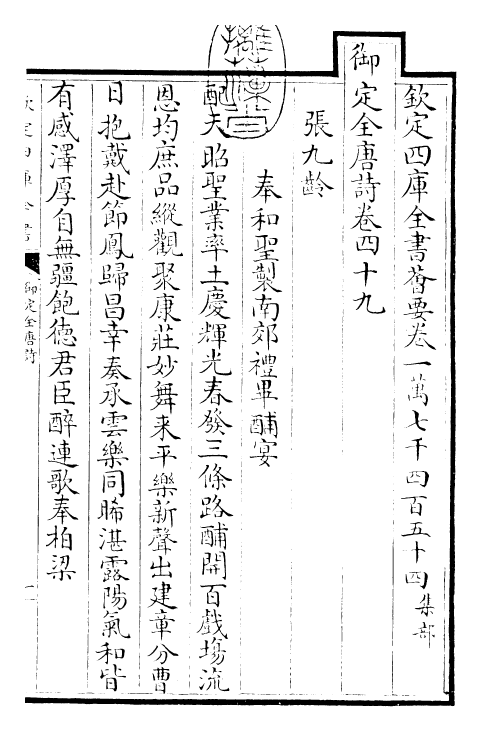 欽定四庫全書薈要卷一萬七千四百五十四 集部
御定全唐詩卷四十九
張九齡
奉和聖製南郊禮畢酺宴
配天昭聖業率土慶輝光春發三條路酺開百戲塲流
恩均庶品縱觀聚康莊妙舞来平樂新聲出建章分曹
日抱戴赴節鳳歸昌幸奏承雲樂同晞湛露陽氣和皆
有感澤厚自無疆飽德君臣醉連歌奉柏梁
欽定四庫全書
御定全唐詩